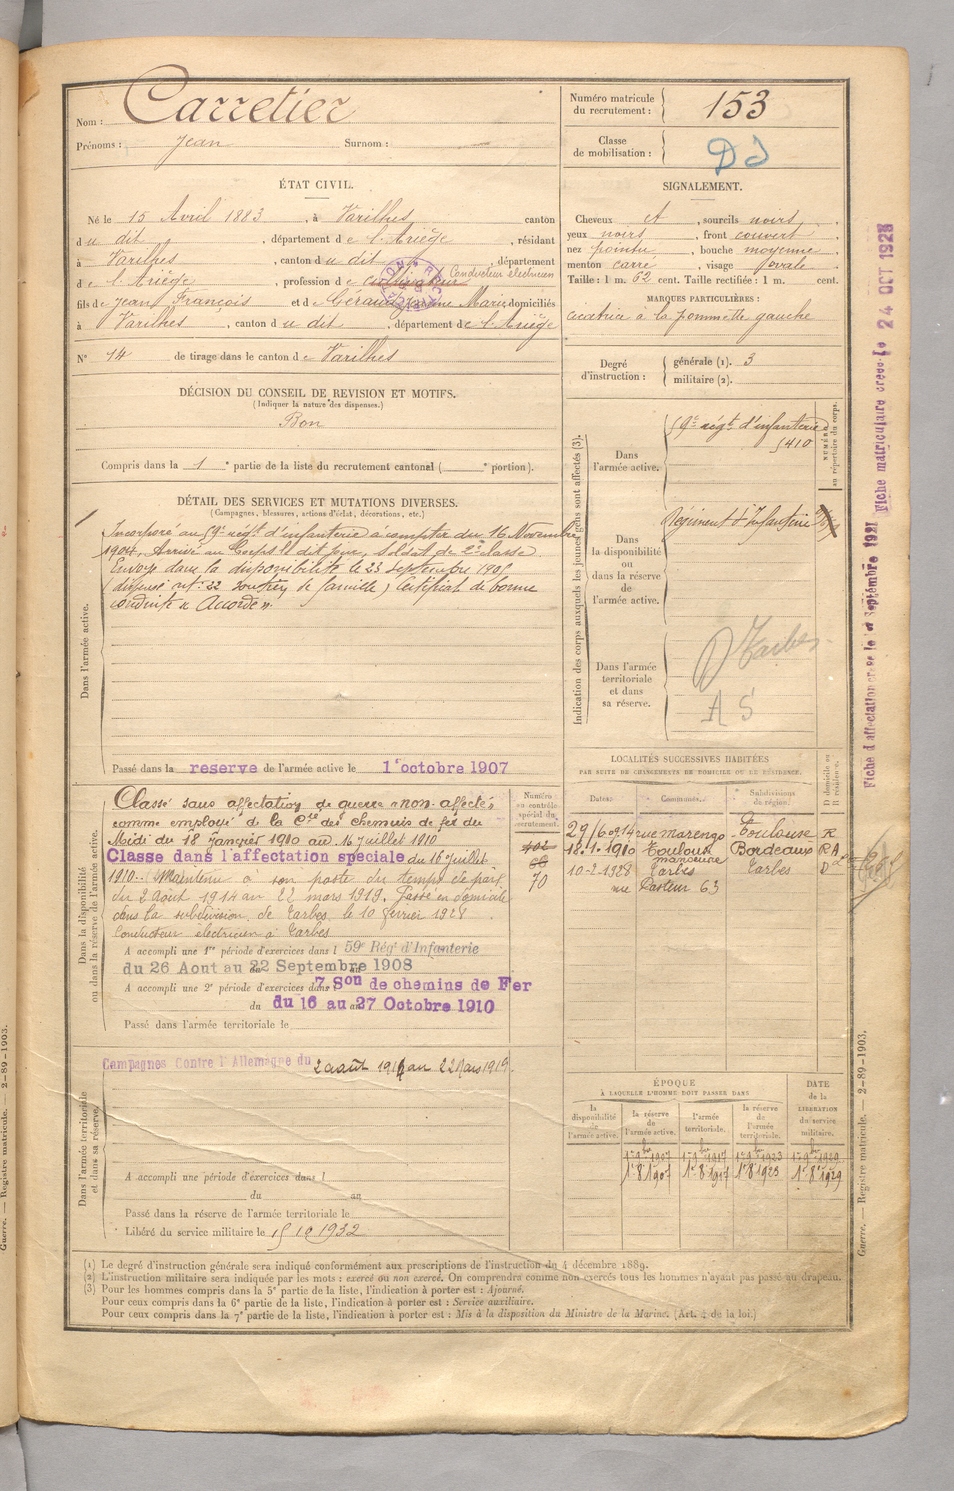 Nom : Carretier
Prénoms : Jean Surnom : —
Numéro matricule du recrutement : 153
Classe de mobilisation :
ÉTAT CIVIL.
Né le 15 Avril 1883, à Varilhes canton
du dit, département de l'Ariège, résidant
à Varilhes, canton du dit, département
Conducteur électricien
de l'Ariège, profession de cultivateur
fils de Jean François et de Géraud Jeanne Marie domiciliés
à Varilhes, canton du dit, département de l'Ariège
N° 14 de tirage dans le canton de Varilhes
SIGNALEMENT.
Cheveux et, sourcils noirs,
yeux noirs, front couvert,
nez pointu, bouche moyenne
menton carré, visage ovale
Taille : 1 m. 62 cent. Taille rectifiée : 1 m. cent.
MARQUES PARTICULIÈRES :
cicatrice à la pommette gauche
Degré d'instruction : générale (1). 3
militaire (2).
DÉCISION DU CONSEIL DE REVISION ET MOTIFS.
(Indiquer la nature des dispenses.)
Bon
Compris dans la 1e partie de la liste du recrutement cantonal ( e portion).
DÉTAIL DES SERVICES ET MUTATIONS DIVERSES.
(Campagnes, blessures, actions d'éclat, décorations, etc.)
Dans l'armée active.
Incorporé au 59e régt d'infanterie à compter du 16 Novembre
1904. Arrivé au Corps le dit jour, soldat de 2e classe
Envoyé dans la disponibilité le 23 septembre 1905
(dispensé art. 22 soutien de famille) Certificat de bonne
conduite « Accordé ».
Passé dans la réserve de l'armée active le 1er octobre 1907
Indication des corps auxquels les jeunes gens sont affectés (3).
Dans l'armée active. 59e régt d'infanterie
5410
NUMÉRO au répertoire du corps.
Dans la disponibilité ou dans la réserve de l'armée active. Régiment d'Infanterie
Dans l'armée territoriale et dans sa réserve. Tarbes
A S
Dans la disponibilité ou dans la réserve de l'armée active.
Classé sans affectation de guerre « non-affectés
comme employé de la Cie des chemins de fer du
Midi du 18 Janvier 1910 au 15 juillet 1910
Classé dans l'affectation spéciale du 16 Juillet
1910. Maintenu à son poste du temps de paix
du 2 Août 1914 au 22 mars 1919. Passé en domicile
dans la subdivision de Tarbes le 10 février 1928
Conducteur électricien à Tarbes
A accompli une 1re période d'exercices dans l 59e Régt d'Infanterie
du 26 Aout au 22 Septembre 1908
A accompli une 2e période d'exercices dans 7. Son de chemins de Fer
du 16 au 27 Octobre 1910
Passé dans l'armée territoriale le
Numéro au contrôle spécial du recrutement.
70
LOCALITÉS SUCCESSIVES HABITÉES
PAR SUITE DE CHANGEMENTS DE DOMICILE OU DE RÉSIDENCE.
Dates. Communes. Subdivisions de région. D domicile ou R résidence.
29/6 0914 rue Marengo Toulouse R
18.1.1910 Toulouse Bordeaux R A
10-2-1928 Tarbes Tarbes D
rue Pasteur 63
Dans l'armée territoriale et dans sa réserve.
Campagnes Contre l'Allemagne du 2 août 1914 au 22 Mars 1919.
A accompli une période d'exercices dans l
du au
Passé dans la réserve de l'armée territoriale le
Libéré du service militaire le 15 10 1932
ÉPOQUE
À LAQUELLE L'HOMME DOIT PASSER DANS
la disponibilité de l'armée active. la réserve de l'armée active. l'armée territoriale. la réserve de l'armée territoriale. DATE de la LIBÉRATION du service militaire.
1er 9bre 1907 1er 9bre 1917 1er 9bre 1923 1er 9bre 1929
1er 8 1907 1er 8 1917 1er 8 1923 1er 8 1929
(1) Le degré d'instruction générale sera indiqué conformément aux prescriptions de l'instruction du 4 décembre 1889.
(2) L'instruction militaire sera indiquée par les mots : exercé ou non exercé. On comprendra comme non exercés tous les hommes n'ayant pas passé au drapeau.
(3) Pour les hommes compris dans la 5e partie de la liste, l'indication à porter est : Ajourné.
Pour ceux compris dans la 6e partie de la liste, l'indication à porter est : Service auxiliaire.
Pour ceux compris dans la 7e partie de la liste, l'indication à porter est : Mis à la disposition du Ministre de la Marine. (Art. 4 de la loi.)
Fiche d'affectation créée le 1er Septembre 1921
Fiche matriculaire créée le 24 OCT 1928
Guerre. — Registre matricule. — 2-89-1903.
Guerre. — Registre matricule. — 2-89-1903.